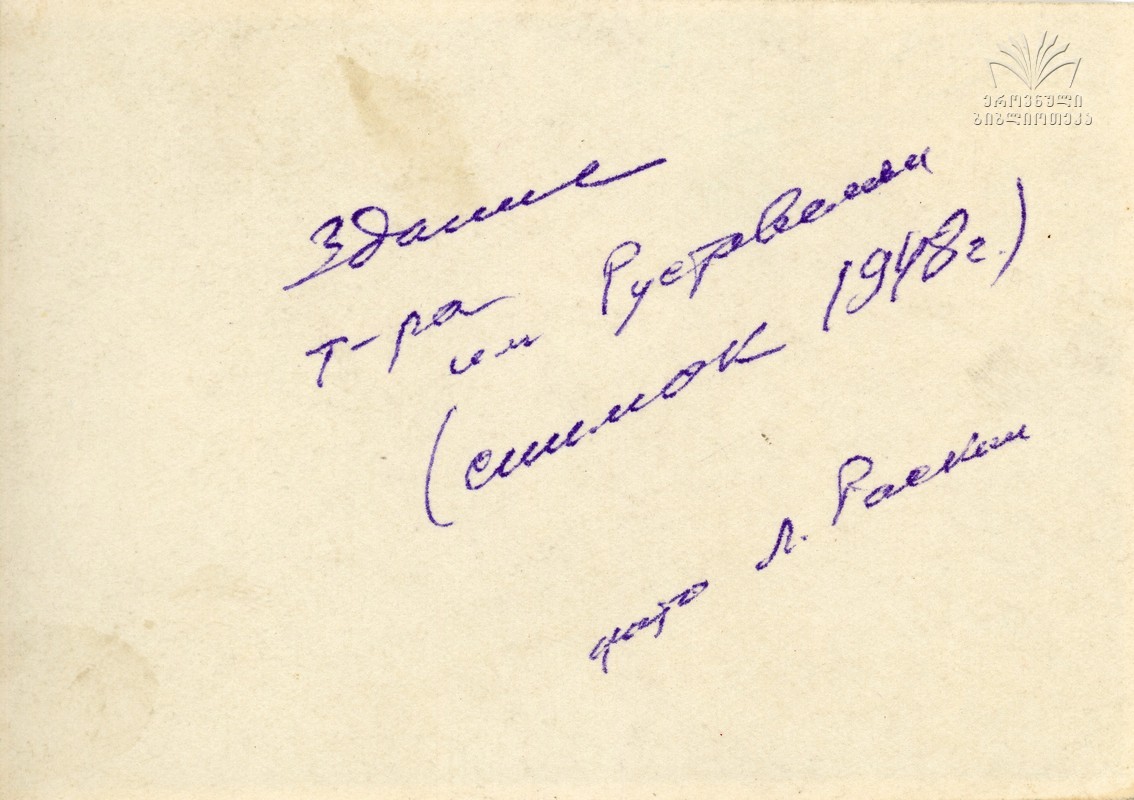 ეროვნული
ბიბლიოთეკა
Здание
т-ра
им Руставели
(снимок 1948 г.)
фото Л. Раскин